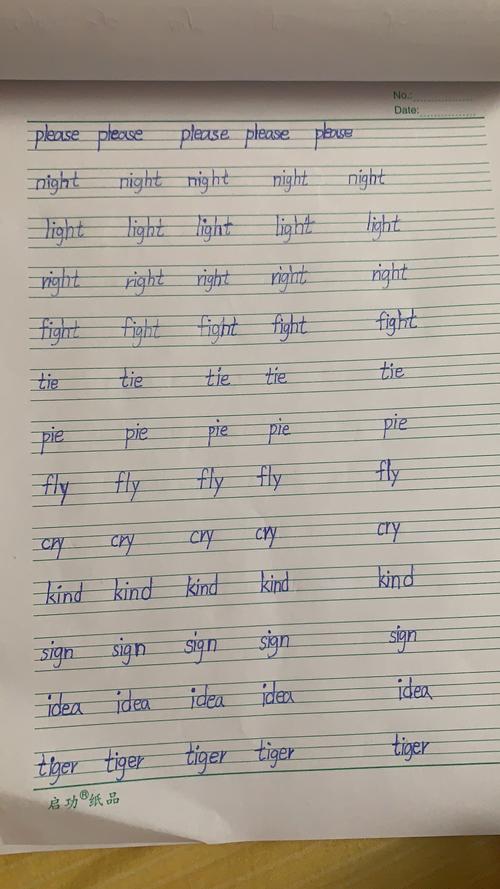 No.:
Date:
please please please please please
night night night night night
light light light light light
right right right right right
fight fight fight fight fight
tie tie tie tie tie
pie pie pie pie pie
fly fly fly fly fly
cry cry cry cry cry
kind kind kind kind kind
sign sign sign sign sign
idea idea idea idea idea
tiger tiger tiger tiger tiger
启功®纸品